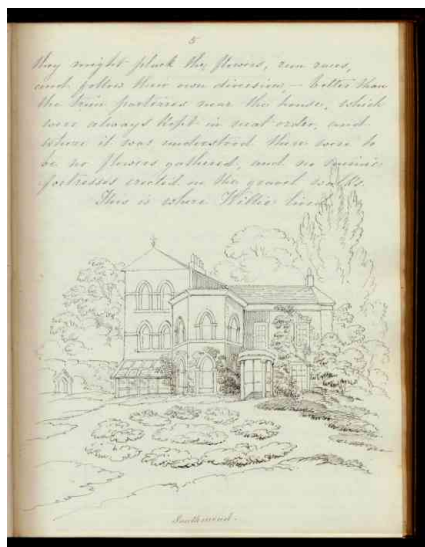 5
they might pluck the flowers, run races,
and follow their own diversion, – better than
the trim parterres near the house, which
were always kept in neat order, and
where it was understood there were to
be no flowers gathered, and no
fortresses erected on the gravel walks.
This is where Willie lived